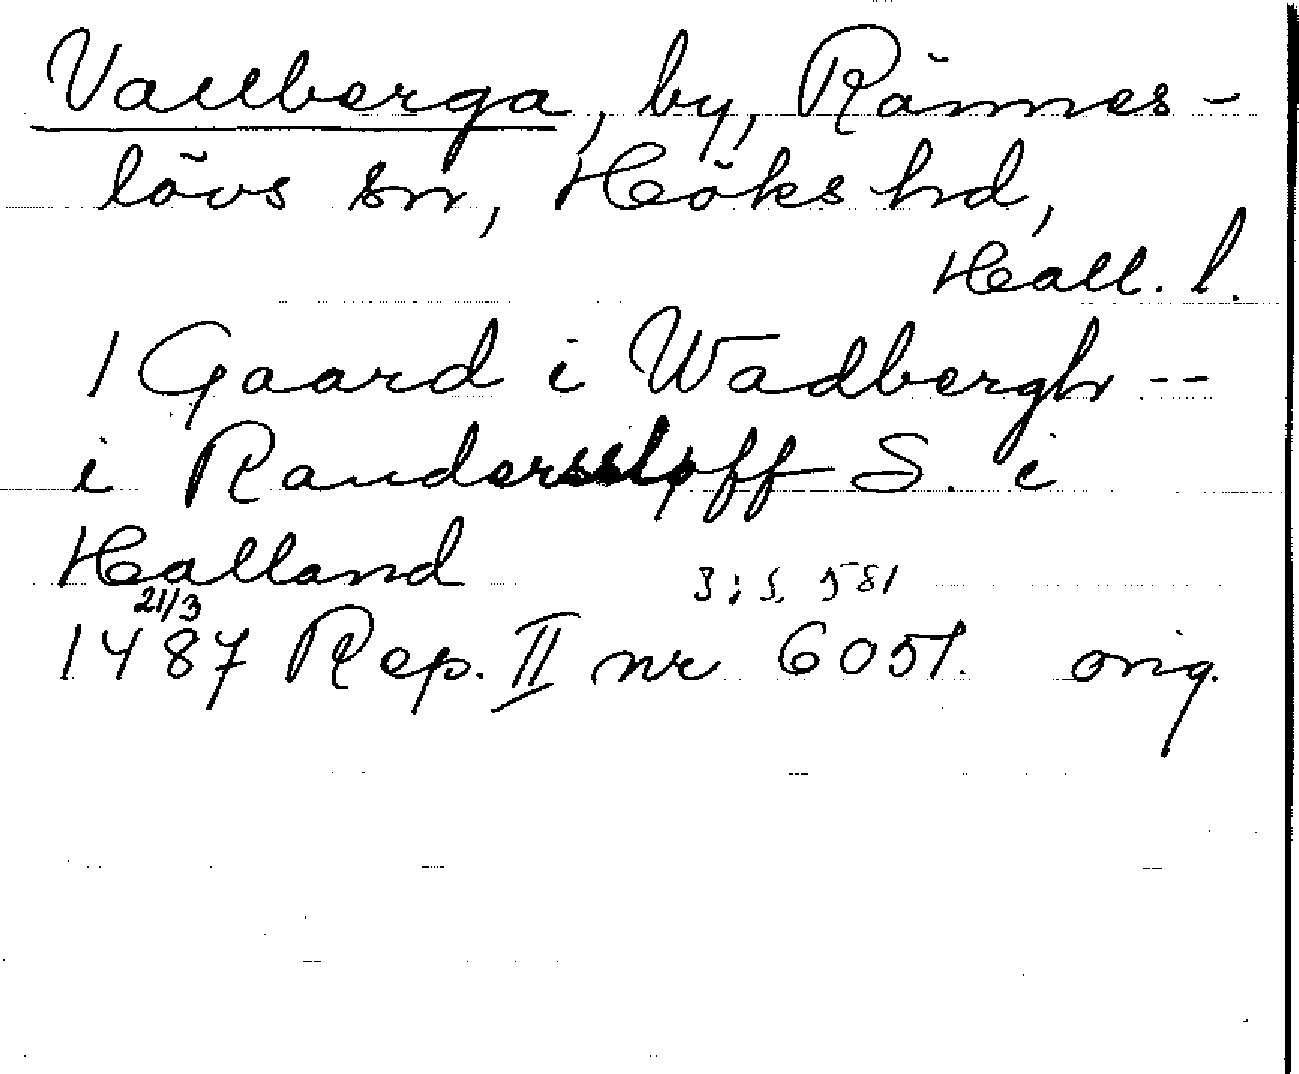 Vallberga, by, Rännes-
lövs sn, Höks hd,
Hall. l.
1 Gaard i Wadbergh --
i Randersloff S. i
Halland
3: s. 581
21/3
1487 Rep. II nr 6051. orig.